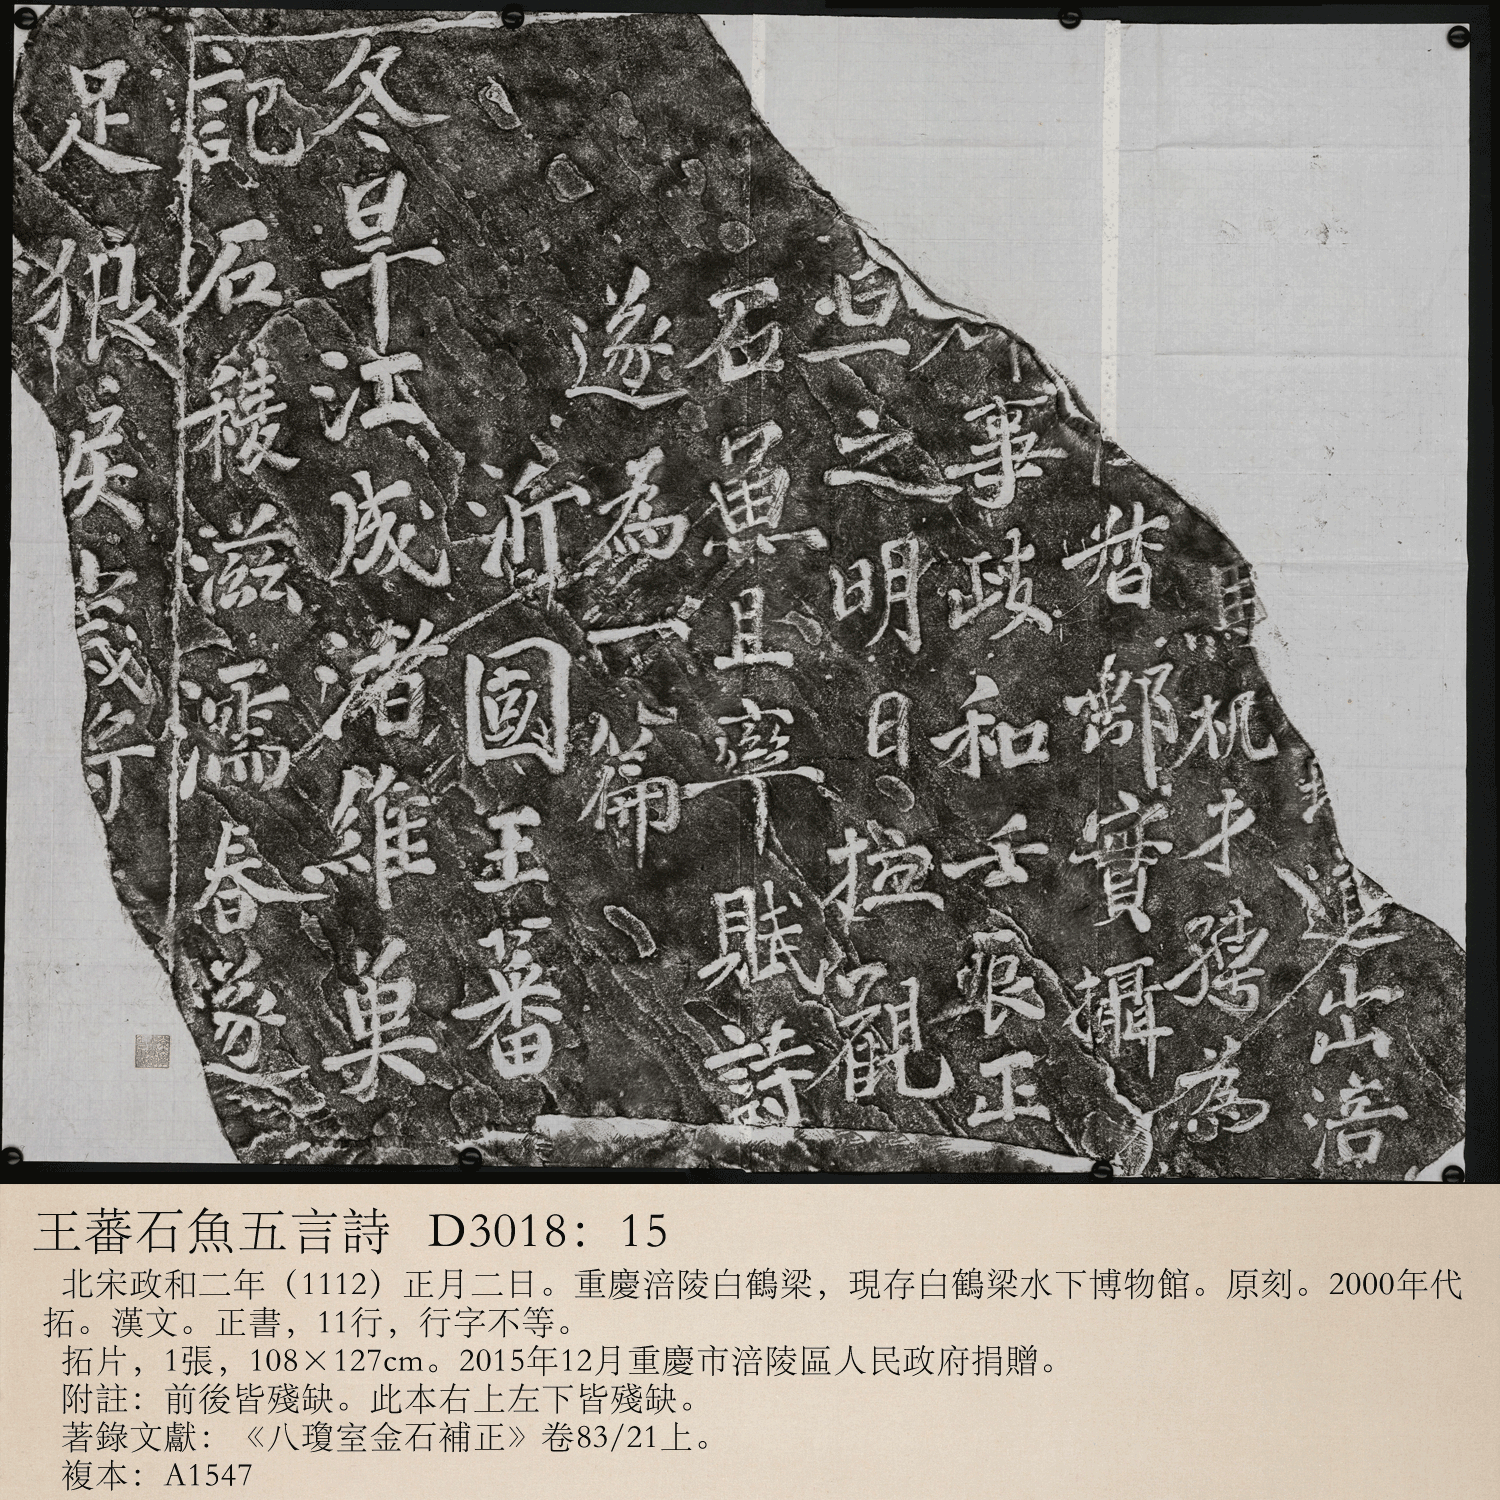 出涪
机才孺為
昔 攝
事政和壬辰正
旦之明日拉觀
石魚且率賦詩
遂為一篇
沂國王蕃
冬旱江成渚維巢
記石稷滋濡春遂
足狠戾歲
王蕃石魚五言詩 D3018：15
北宋政和二年（1112）正月二日。重慶涪陵白鶴梁，現存白鶴梁水下博物館。原刻。2000年代
拓。漢文。正書，11行，行字不等。
拓片，1張，108×127cm。2015年12月重慶市涪陵區人民政府捐贈。
附註：前後皆殘缺。此本右上左下皆殘缺。
著錄文獻：《八瓊室金石補正》卷83/21上。
複本：A1547